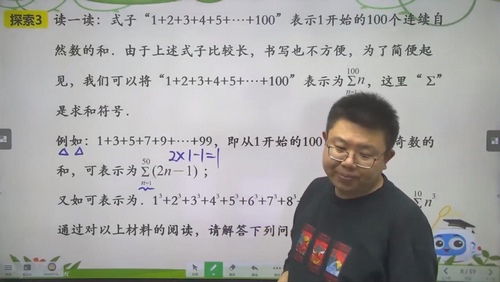 探索3 读一读：式子“1+2+3+4+5+⋯+100”表示1开始的100个连续自
然数的和．由于上述式子比较长，书写也不方便，为了简便起
见，我们可以将“1+2+3+4+5+⋯+100”表示为 100 Σ n=1 n，这里“Σ”
是求和符号．
例如：1+3+5+7+9+⋯+99，即从1开始的100 奇数的
2×1-1=1
和，可表示为 50 Σ n=1 (2n−1)；
又如可表示为．1³+2³+3³+4³+5³+6³+7³+8³ 10 n³
通过对以上材料的阅读，请解答下列问